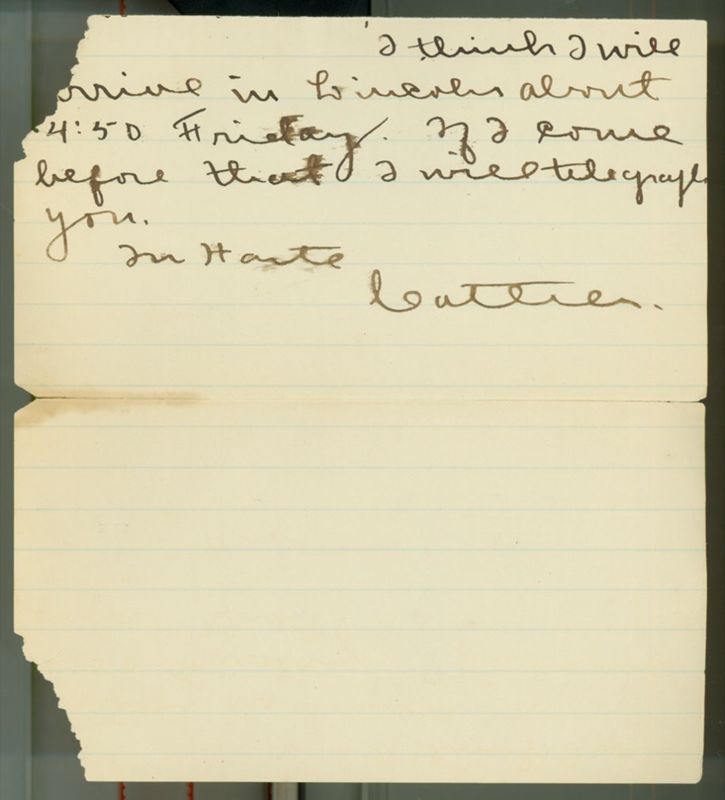 I think I will
arrive in Lincoln about
4:50 Friday. If I come
before that I will telegraph
you.
In Haste
Cather.